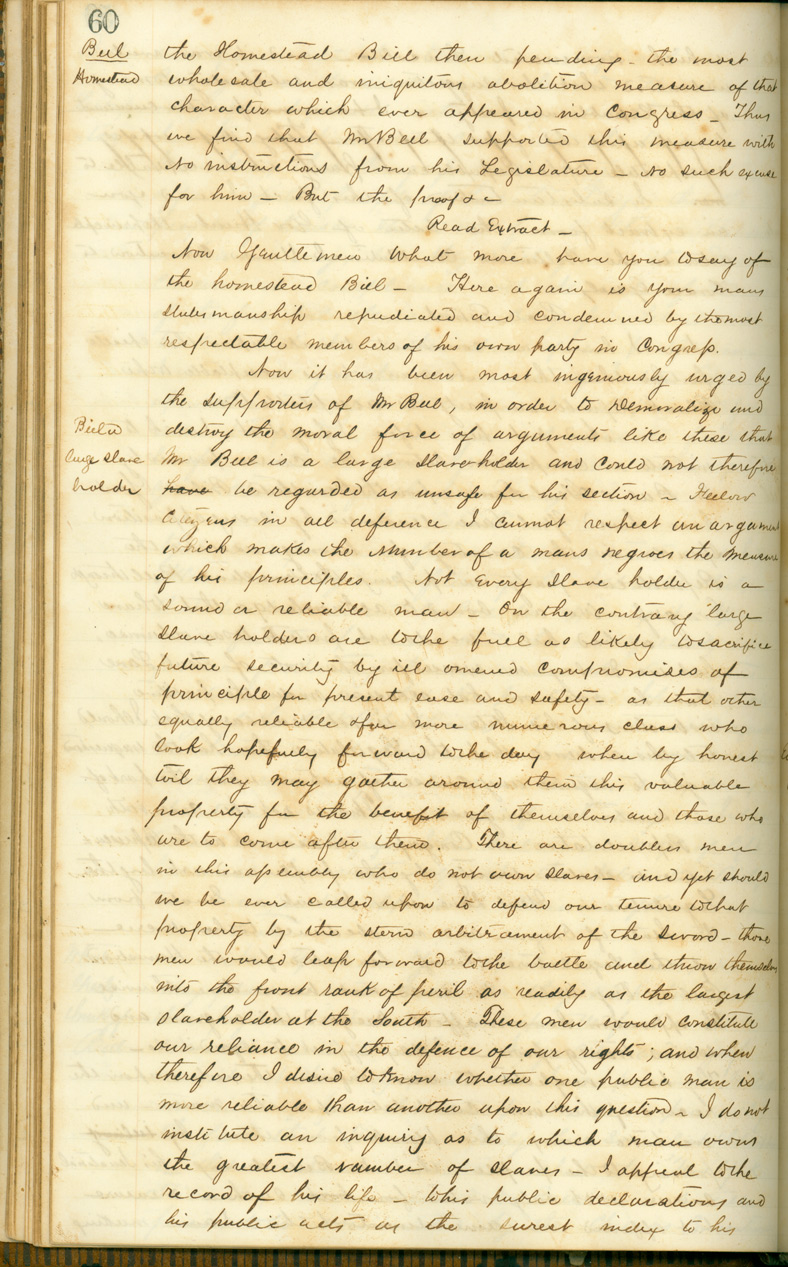 60
Bell
Homestead
the Homestead Bill then pending - the most
wholesale and iniquitous abolition measure of that
character which ever appeared in Congress - Thus
we find that Mr Bell supported this measure with
No instructions from his Legislature - No such excuse
for him - But the proof & c
Read Extract -
Now Gentlemen What more have you to say of
the homestead Bill - Here again is your mans
statesmanship repudiated and condemned by the most
respectable members of his own party in Congress.
Now it has been most ingeniously urged by
the supporters of Mr Bell, in order to demoralize and
Bell a
large slave
holder
destroy the moral force of arguments like these that
Mr Bell is a large slaveholder and could not therefore
have be regarded as unsafe for his section - Fellow
Citizens in all deference I cannot respect an argument
which makes the number of a mans negroes the measure
of his principles. Not Every slave holder is a
sound or reliable man - On the contrary large
slave holders are to the full as likely to sacrifice
future security by ill omened compromises of
principle for present ease and safety - as that other
equally reliable & far more numerous class who
look hopefully forward to the day when by honest
toil they may gather around them this valuable
property for the benefit of themselves and those who
are to come after them. There are doubtless men
in this assembly who do not own slaves - and yet should
we be ever called upon to defend our tenure to that
property by the stern arbitrament of the sword - those
men would leap forward to the battle and throw themselves
into the front rank of peril as readily as the largest
slaveholder at the South - These men would constitute
our reliance in the defence of our rights; and when
therefore I desire to know whether one public man is
more reliable than another upon this question - I do not
institute an inquiry as to which man owns
the greatest number of slaves - I appeal to the
record of his life - to his public declarations and
his public acts as the surest index to his